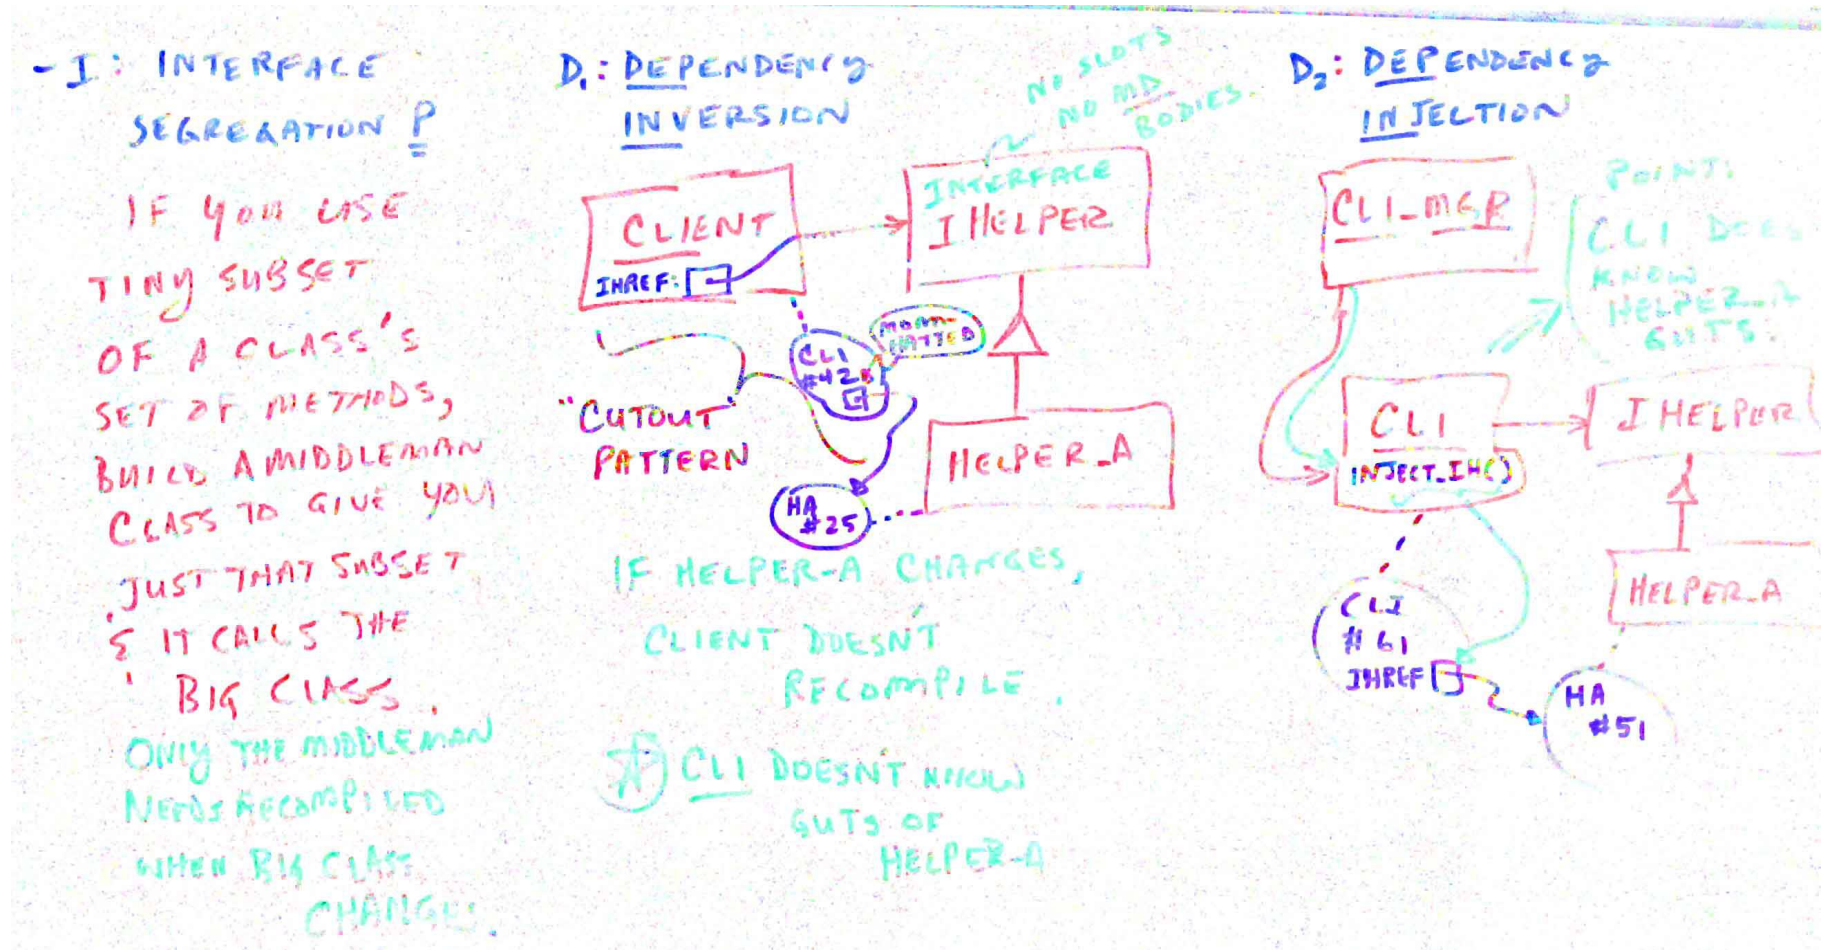 - I: INTERFACE
SEGREGATION P
IF YOU USE
TINY SUBSET
OF A CLASS'S
SET OF METHODS,
BUILD A MIDDLEMAN
CLASS TO GIVE YOU
JUST THAT SUBSET
& IT CALLS THE
BIG CLASS.
ONLY THE MIDDLEMAN
NEEDS RECOMPILED
WHEN BIG CLASS
CHANGES.
D1: DEPENDENCY
INVERSION
NO SLOTS
NO MD
BODIES.
CLIENT
IHREF:
INTERFACE
I HELPER
CLI
#42
"CUTOUT"
PATTERN
HELPER_A
HA
#25
IF HELPER-A CHANGES,
CLIENT DOESN'T
RECOMPILE.
CLI DOESN'T KNOW
GUTS OF
HELPER-A
D2: DEPENDENCY
INJECTION
CLI_MGR
POINT:
CLI DOES
KNOW
HELPER_A
GUTS.
CLI
INJECT_IH()
I HELPER
HELPER_A
CLI
#61
IHREF
HA
#51